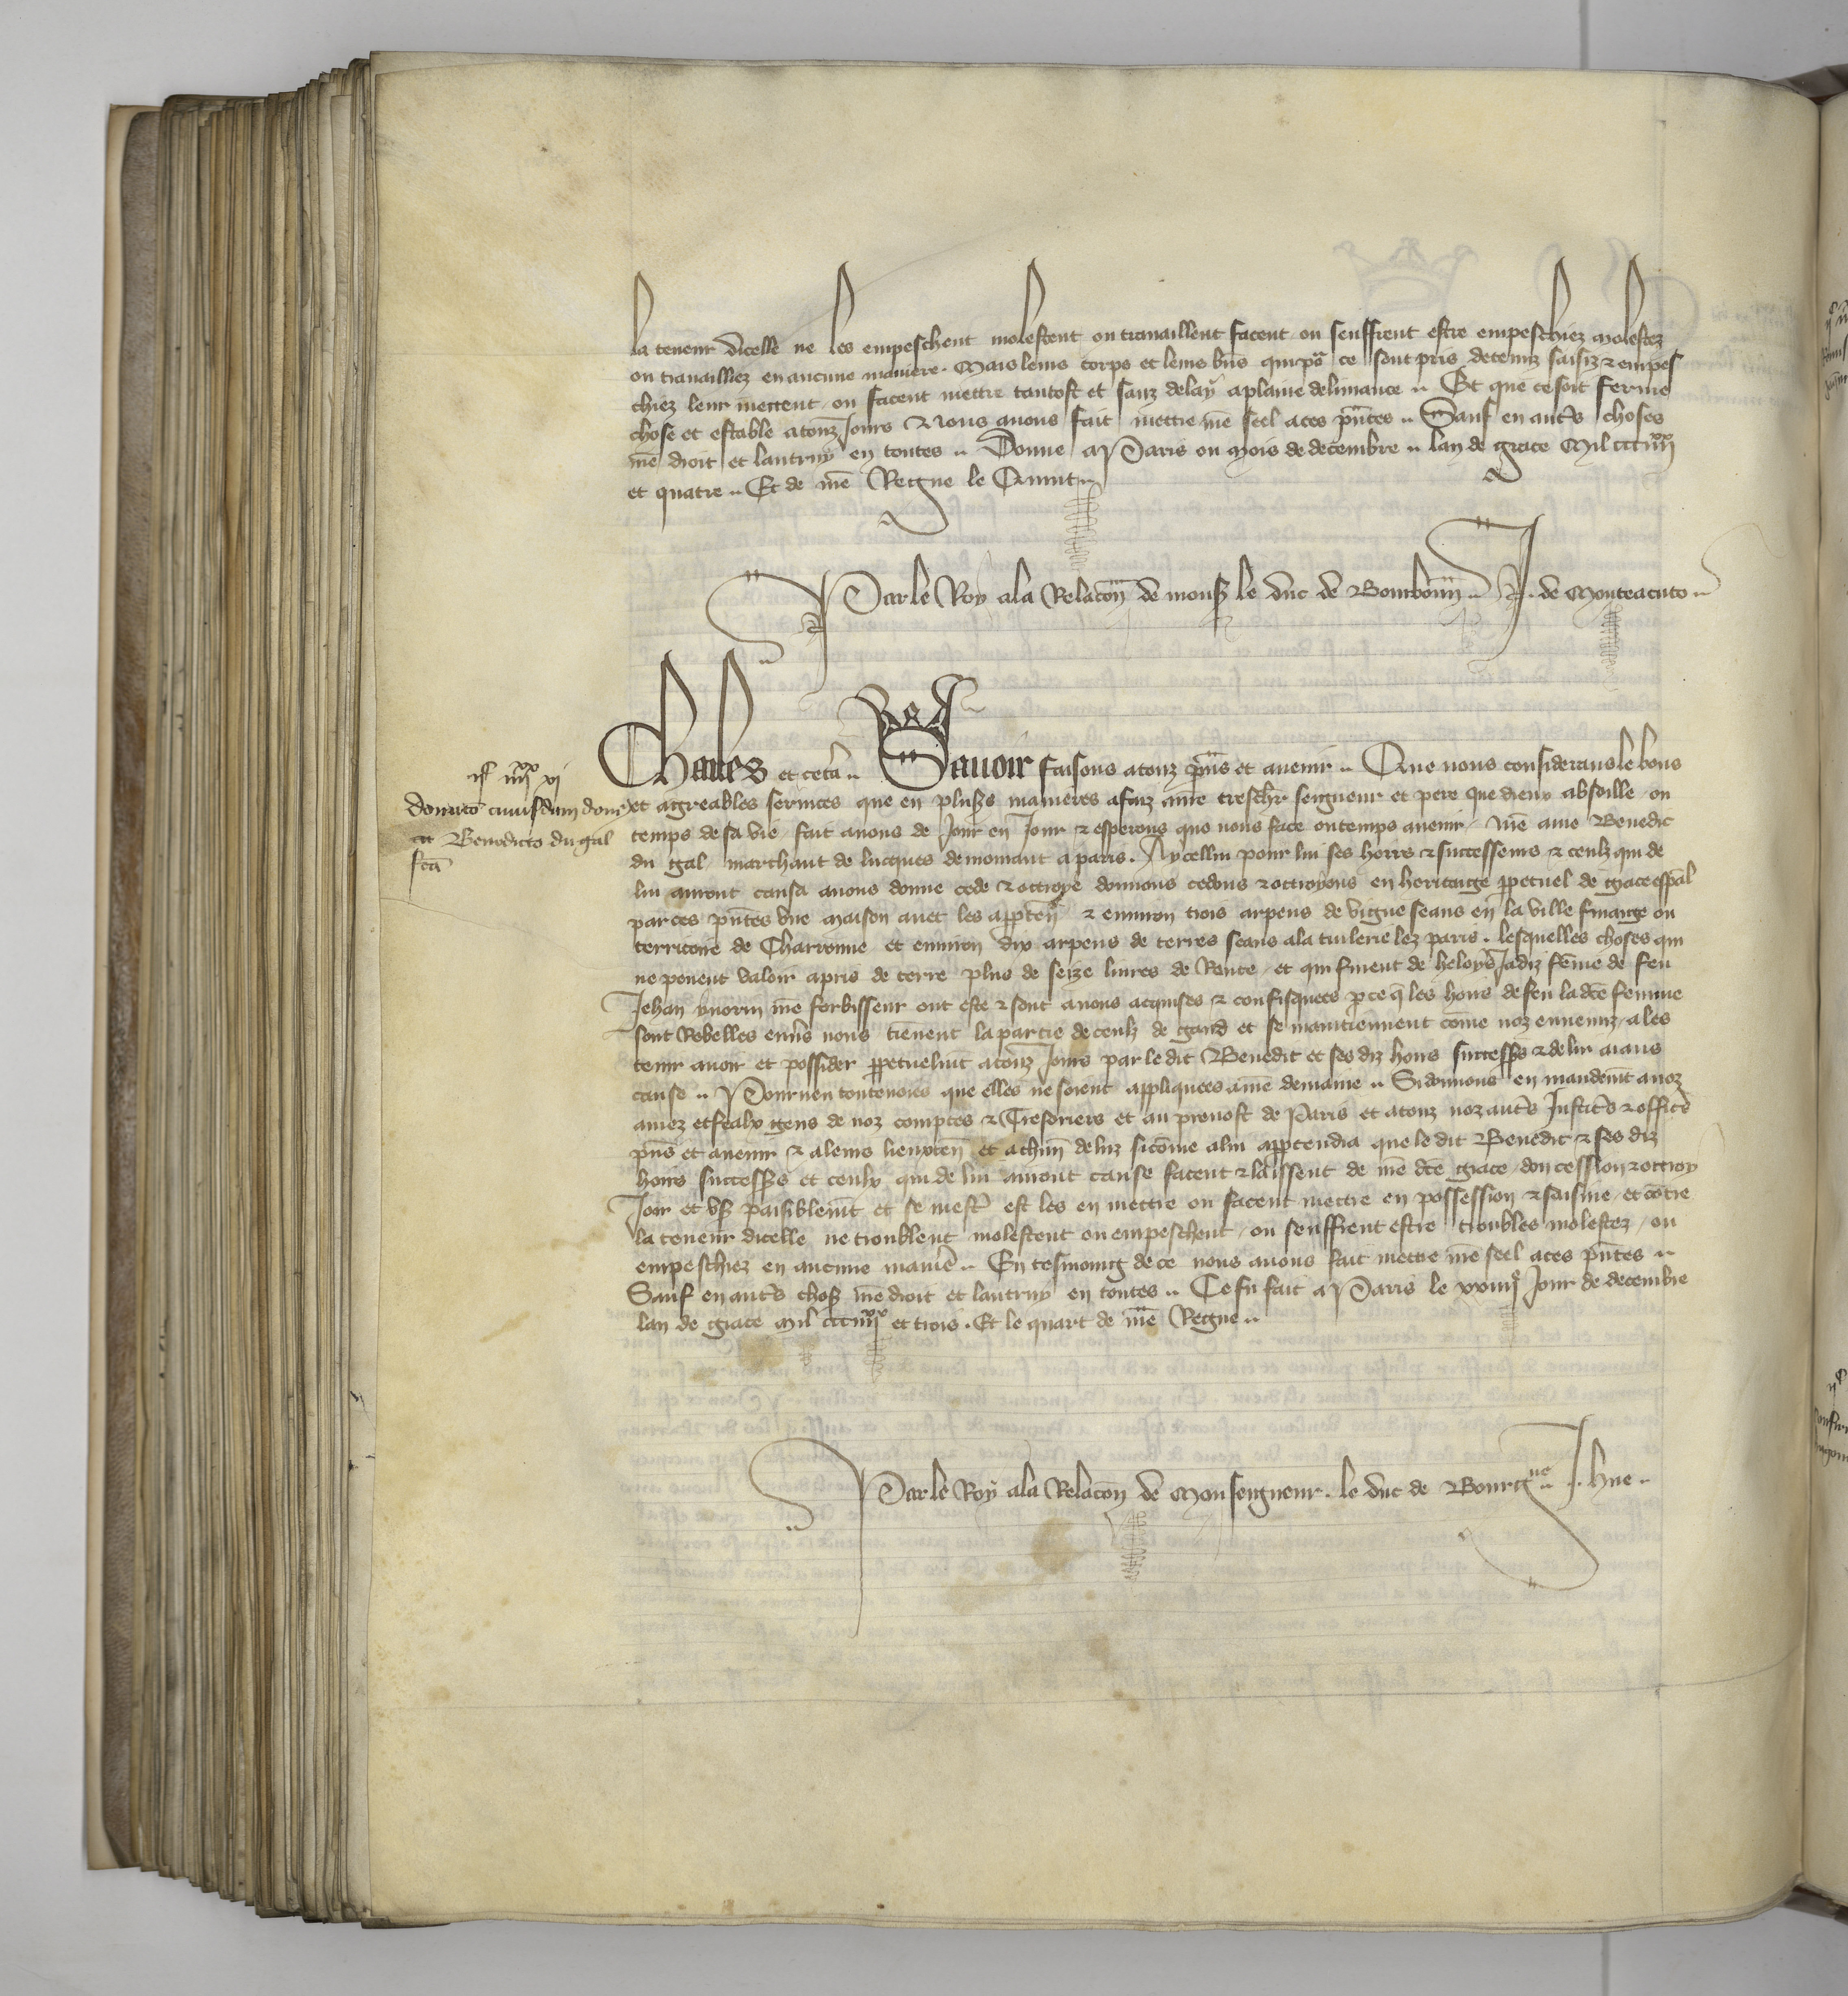 la teneur dicelle ne les empeschent molestent ou trauaillent facent ou seuffrent estre empeschiez molestez
ou trauailliez en aucune maniere. Mais leurs corps et leurs bñs qui pour ce sont pris detenuz saisiz & empes
chiez leur mettent ou facent mettre tantost et sanz delay a plaine deliurance .. Et que ce soit ferme
chose et estable atouz Jours Nous auons fait mettre nr̃e seel aces pñtes .. Sauf en autr̃s choses
nr̃e droit et lautruy en toutes .. Donne a Paris ou Mois de decembre .. lan de grace Mil ccc iiijxx
et quatre .. Et de nr̃e Regne le Quint ..
Par le Roy ala Relacõn de mons le duc de Bourbonñ .. J. de Monteacuto ..
Charles et cetã .. Sauoir faisons atouz pñs et auenir .. Que nous considerans le bons
et aggreables seruices que en plusrs manieres a faiz a nr̃e treschr̃ seigneur et pere que dieux absoille ou
temps de sa vie fait anous de Jour en Jour & esperons que nous face ou temps auenir nr̃e ame Benedic
du gal marchant de lucques demourant a paris. A ycellui pour lui ses hoirs & successeurs & ceulz qui de
lui auront causa auons donne cede & ottroye donnons cedons & ottroyons en heritaige ꝑpetuel de grace esp̃al
par ces pñtes vne Maison auec les apparteñ & enuiron trois arpens de vigne seans en la ville finaige ou
territoire de Charronne et enuiron dix arpens de terres seans ala tuilerie lez paris. lesquelles choses qui
ne peuent valoir a pris de terre plus de seize liures de Rente et qui furent de heloys Jadiz fẽme de feu
Jehan nr̃e forbisseur ont este & sont anous acquises & confisquees ꝑ ce q̃ les hoirs de feu ladc̃e femme
sont Rebelles enuers nous tiennent la partie de ceulz de gand et se maintiennent cõme noz ennemiz a les
tenir auoir et possider ꝑpetuelmt atouz Jours par le dit Benedic et ses diz hoirs successrs & de lui aians
cause .. Pourueu toutesuoies que elles ne soient appliquees a nr̃e demaine .. Si donnons en mandemt anoz
amez et feaulx gens de noz comptes & Tresoriers et au preuost de Paris et atouz noz autr̃s Justic̃s & offic̃s
pñs et auenir & a leurs lieuxteñ et achũn deulz sicõme alui appartendra que le dit Benedic & ses diz
hoirs successrs et ceulx qui de lui auront cause facent & laissent de nr̃e dc̃e grace don cession & ottroy
Joir et vsr paisiblemt et se mestr̃ est les en mettre ou facent mettre en possession & saisine et cõtre
la teneur dicelle ne troublent molestent ou empeschent ou seuffrent estre troubles molestez ou
empeschiez en aucune manier̃ .. En tesmoing de ce nous auons fait mettre nr̃e seel aces pñtes ..
Sauf en autr̃s choses nr̃e droit et lautruy en toutes .. Ce fu fait a Paris le xxiiije Jour de decembre
lan de grace Mil ccc iiijxx et trois. Et le quart de nr̃e Regne ..
Par le Roy ala Relacõn de Monseigneur. le duc de Bourgne .. J. hue ..
ijc iiijxx xj
donacio cuiusdam dom
Benedicto du gal
fcã